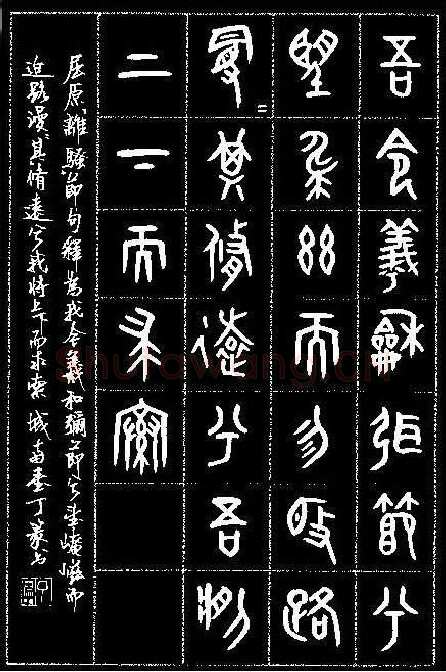 吾令羲龢弭節兮
望弇兹而勿迫路
曼=其脩遠兮吾將
上下而求索
屈原離騷節句釋為我令羲和彌節兮望崦嵫而
迫路漫〻其脩遠兮我將上下而求索 城南老丁篆书
Shufawang.cn